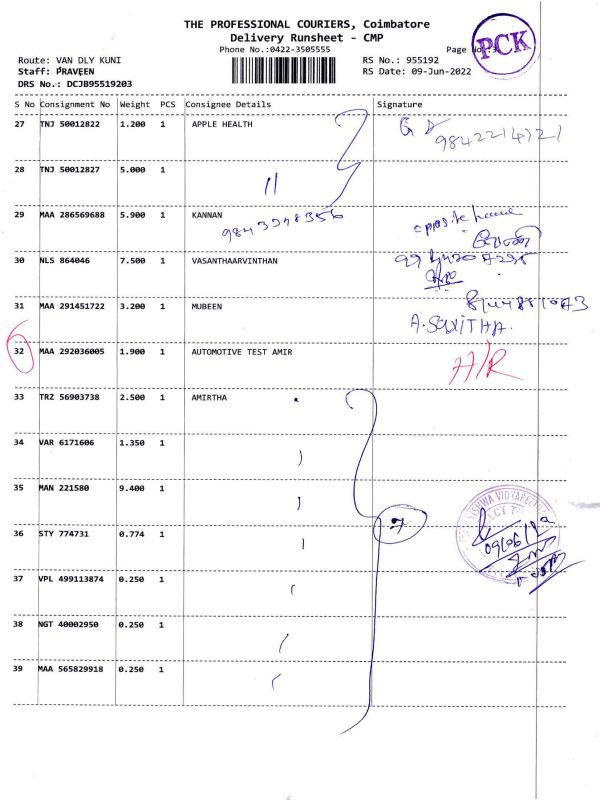 THE PROFESSIONAL COURIERS, Coimbatore
Delivery Runsheet - CMP
Phone No.:0422-3505555
Page No.:
PCK
Route: VAN DLY KUNI
RS No.: 955192
Staff: PRAVEEN
RS Date: 09-Jun-2022
DRS No.: DCJB95519203
S No Consignment No Weight PCS Consignee Details Signature
27 TNJ 50012822 1.200 1 APPLE HEALTH
9842214721
28 TNJ 50012827 5.000 1
29 MAA 286569688 5.900 1 KANNAN
opposite house
30 NLS 864046 7.500 1 VASANTHAARVINTHAN
31 MAA 291451722 3.200 1 MUBEEN
A. SAVITHA.
32 MAA 292036005 1.900 1 AUTOMOTIVE TEST AMIR
H/R
33 TRZ 56903738 2.500 1 AMIRTHA
34 VAR 6171606 1.350 1
35 MAN 221580 9.400 1
7
36 STY 774731 0.774 1
37 VPL 499113874 0.250 1
38 NGT 40002950 0.250 1
39 MAA 565829918 0.250 1